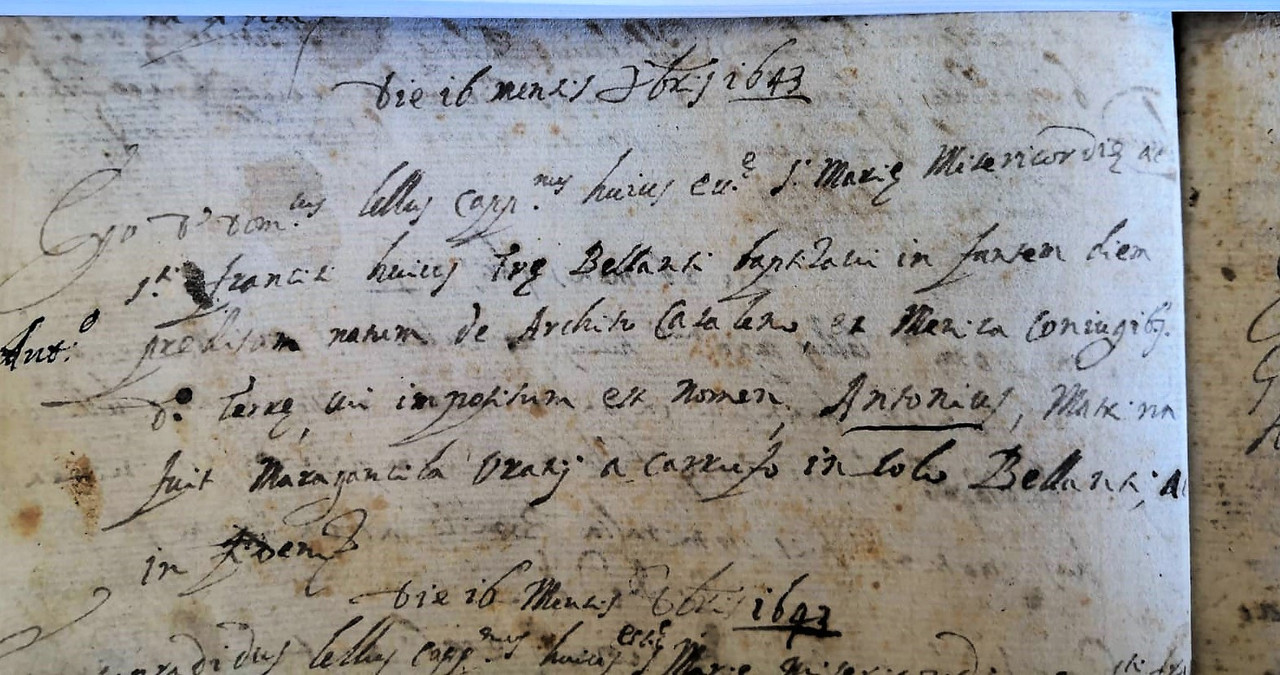 Die 16 mensis Xbris 1643
Ego D. Dom.cus lellus capp.nus huius ecc.e S. Marię Misericordię ac
S.ti francisci huius Trę Bellanti baptizavi in fantem diem
Ant.o
predictam natum de Archito Catalano et Menica coniugib9.
D.e Terrę, cui impositum est nomen, Antonius, Matrina
fuit Margantella a Carrufo in loco Bellanti, ac
in fidem
Die 16 Mensis Xbris 1643
lellus capp.nus huius S. Marię